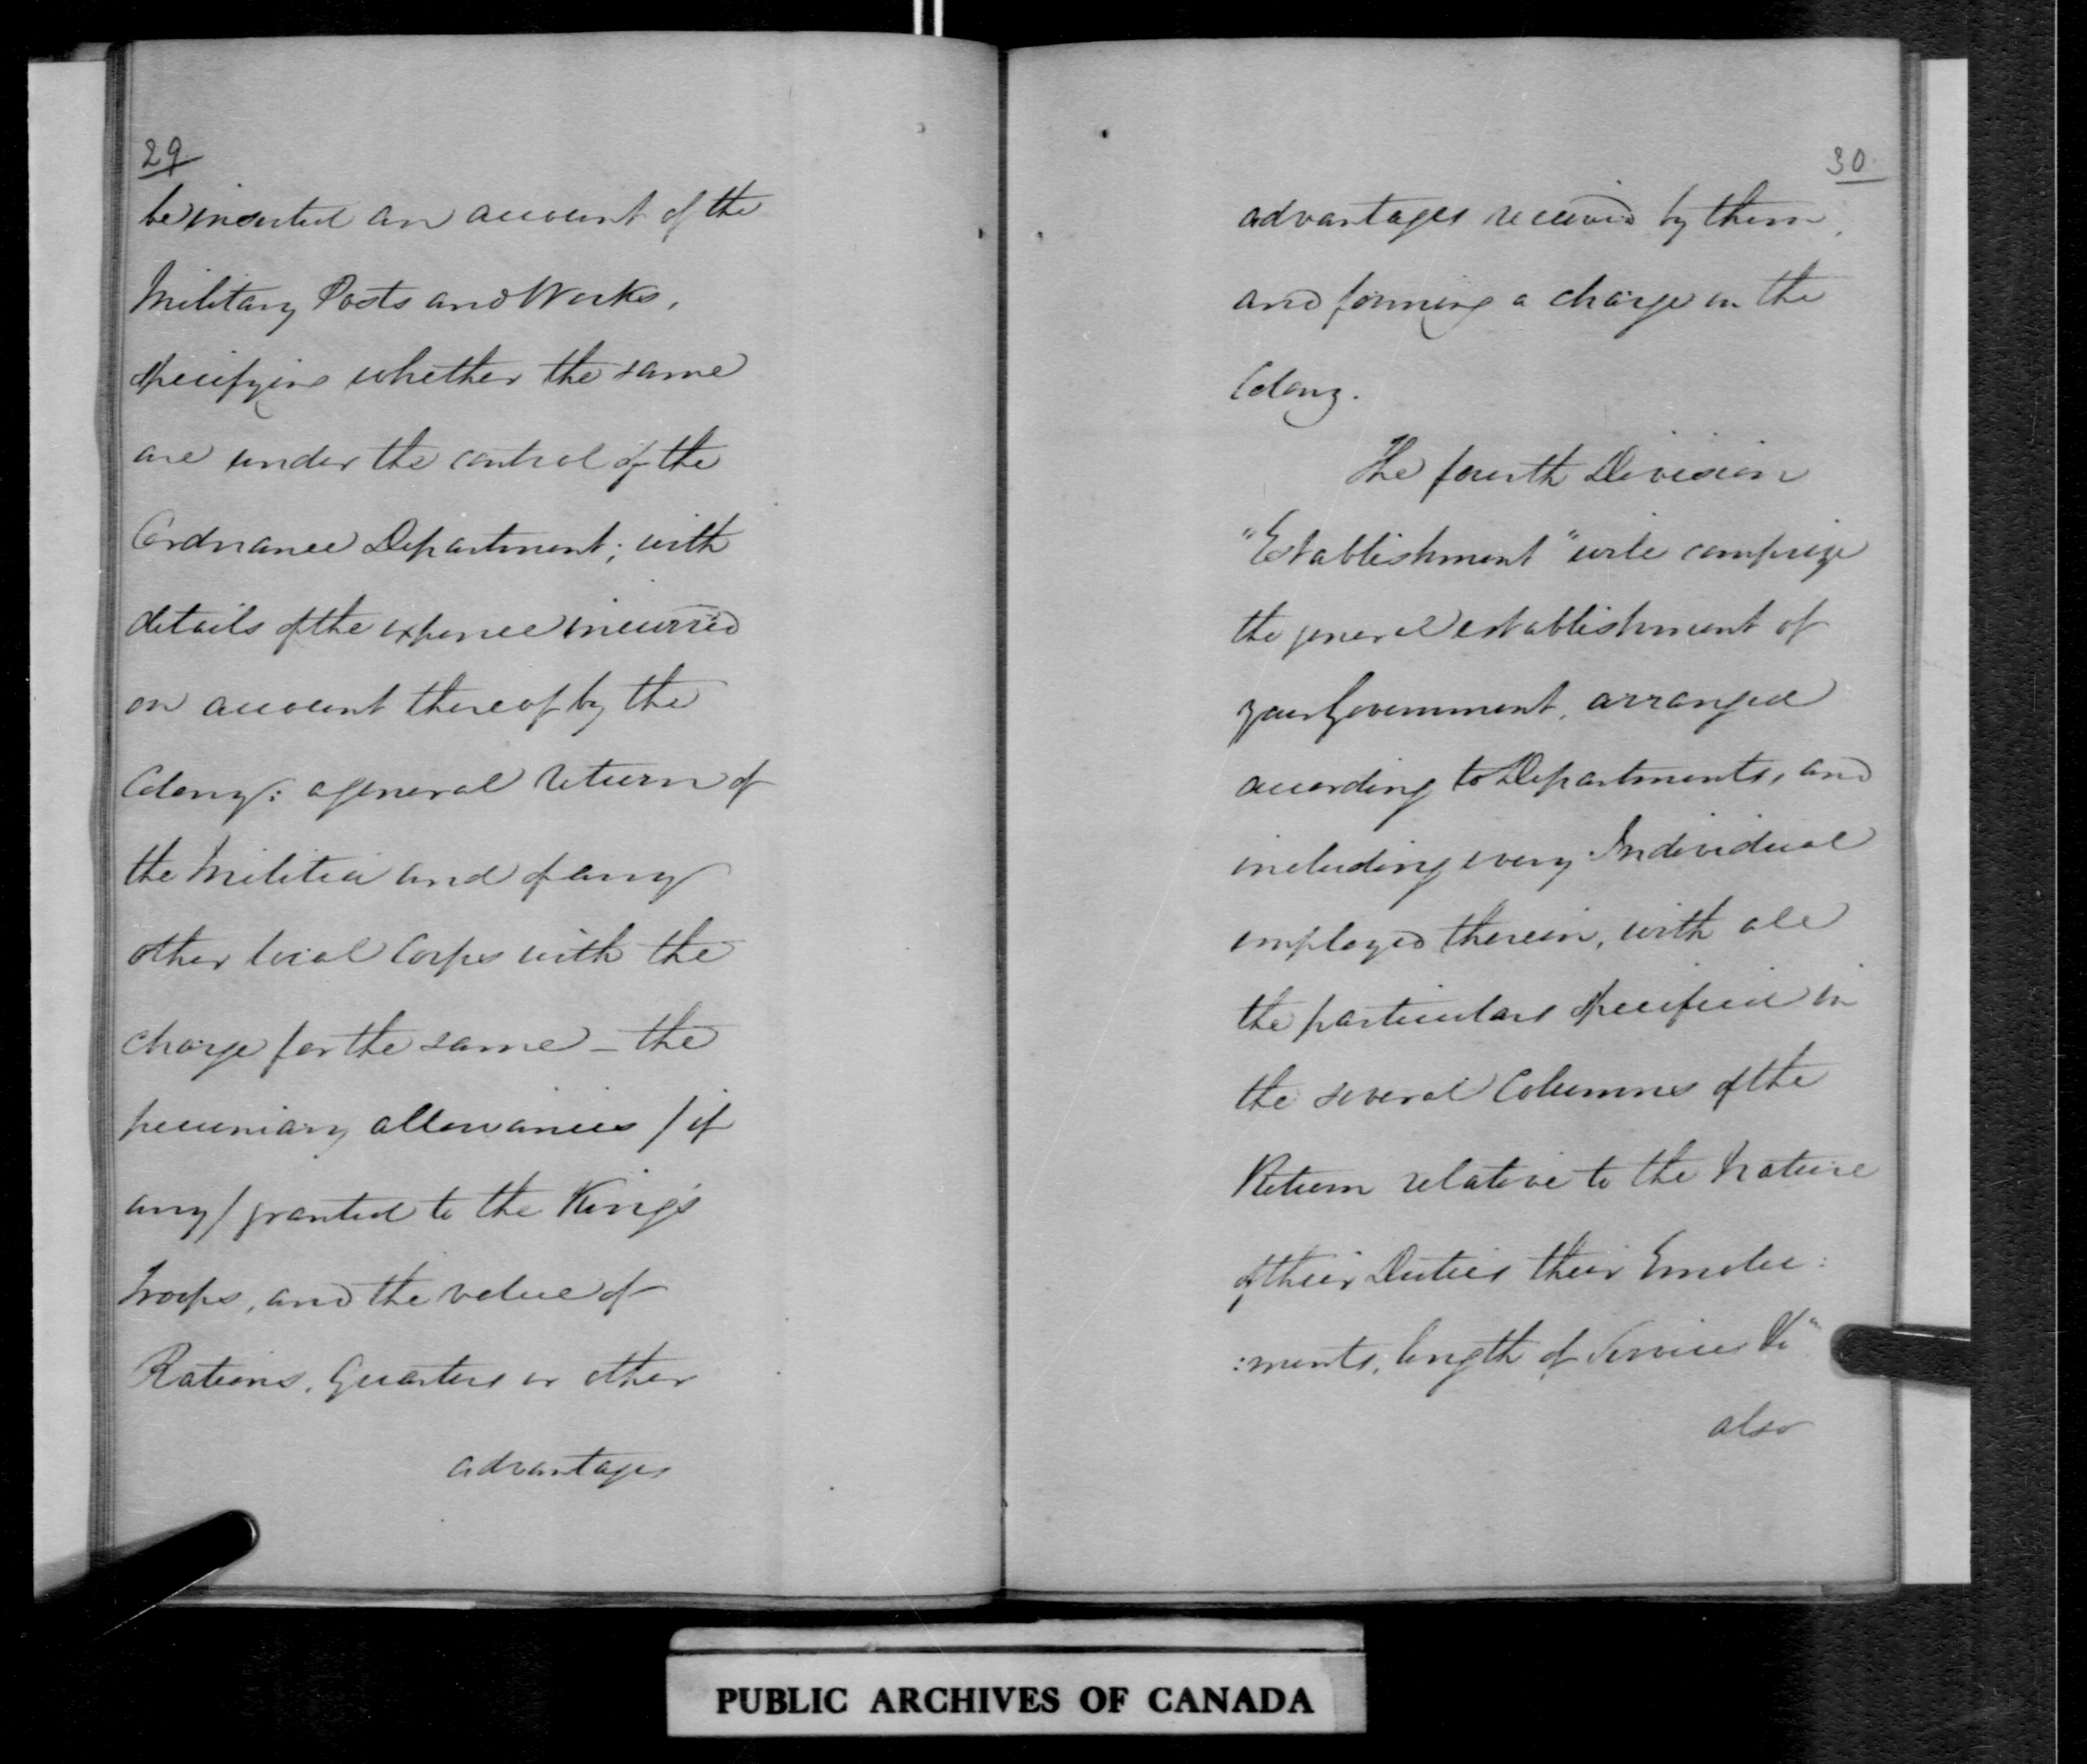 29
be inserted an account of the
Military Posts and Works,
specifying whether the same
are under the control of the
Ordnance Department; with
details of the expence incurred
on account thereof by the
Colony: a general return of
the Militia and of any
other local Corps with the
charge for the same – the
pecuniary allowances / if
any / granted to the King's
Troops, and the value of
Rations, Quarters or other
advantages
30
advantages received by them,
and forming a charge on the
Colony.
The fourth Division
"Establishment" will comprize
the general establishment of
your Government, arranged
according to Departments, and
including every Individual
employed therein, with all
the particulars specified in
the several Columns of the
Return relative to the nature
of their Duties their Emolu:
:ments, length of Services &c
also
PUBLIC ARCHIVES OF CANADA